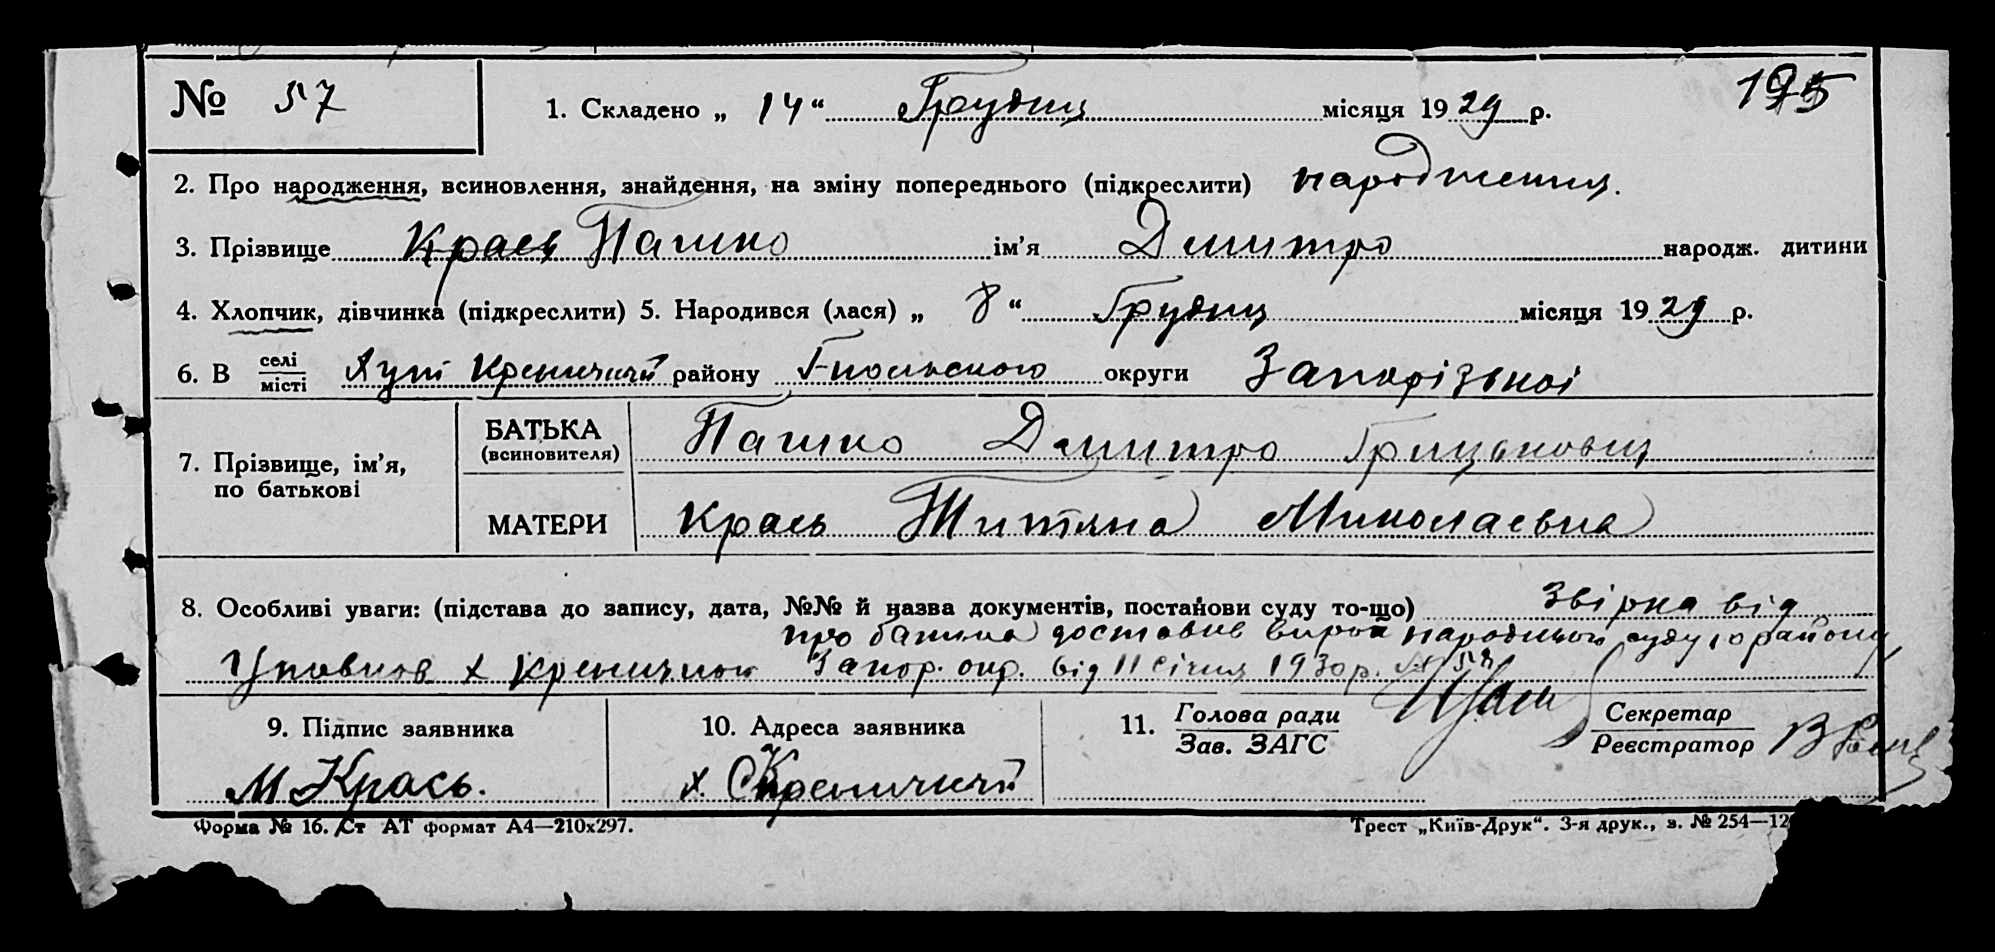 № 57 1. Складено „ 14 “ Грудня місяця 19 29 р. 195
2. Про народження, всиновлення, знайдення, на зміну попереднього (підкреслити) народження.
3. Прізвище Крась Пашко ім’я Дмитро народж. дитини
4. Хлопчик, дівчинка (підкреслити) 5. Народився (лася) „ 8 “ Грудня місяця 19 29 р.
6. В селі Хут Креничний району округи Запорізької
місті
7. Прізвище, ім’я, по батькові
БАТЬКА Пашко Дмитро Грицькович
(всиновителя)
МАТЕРИ Крась Титяна Миколаевна
8. Особливі уваги: (підстава до запису, дата, №№ й назва документів, постанови суду то-що) Звірка від
про батька доставив вирок народнього суду 10 району
Уповнов х Креничної Запор. окр. від 11 січня 1930 р.
9. Підпис заявника 10. Адреса заявника 11. Голова ради Секретар
Зав. ЗАГС Реєстратор
М Крась. х. Креничний
Форма № 16. Ст АТ формат А4—210х297. Трест „Київ-Друк“. 3-я друк., з. № 254—12